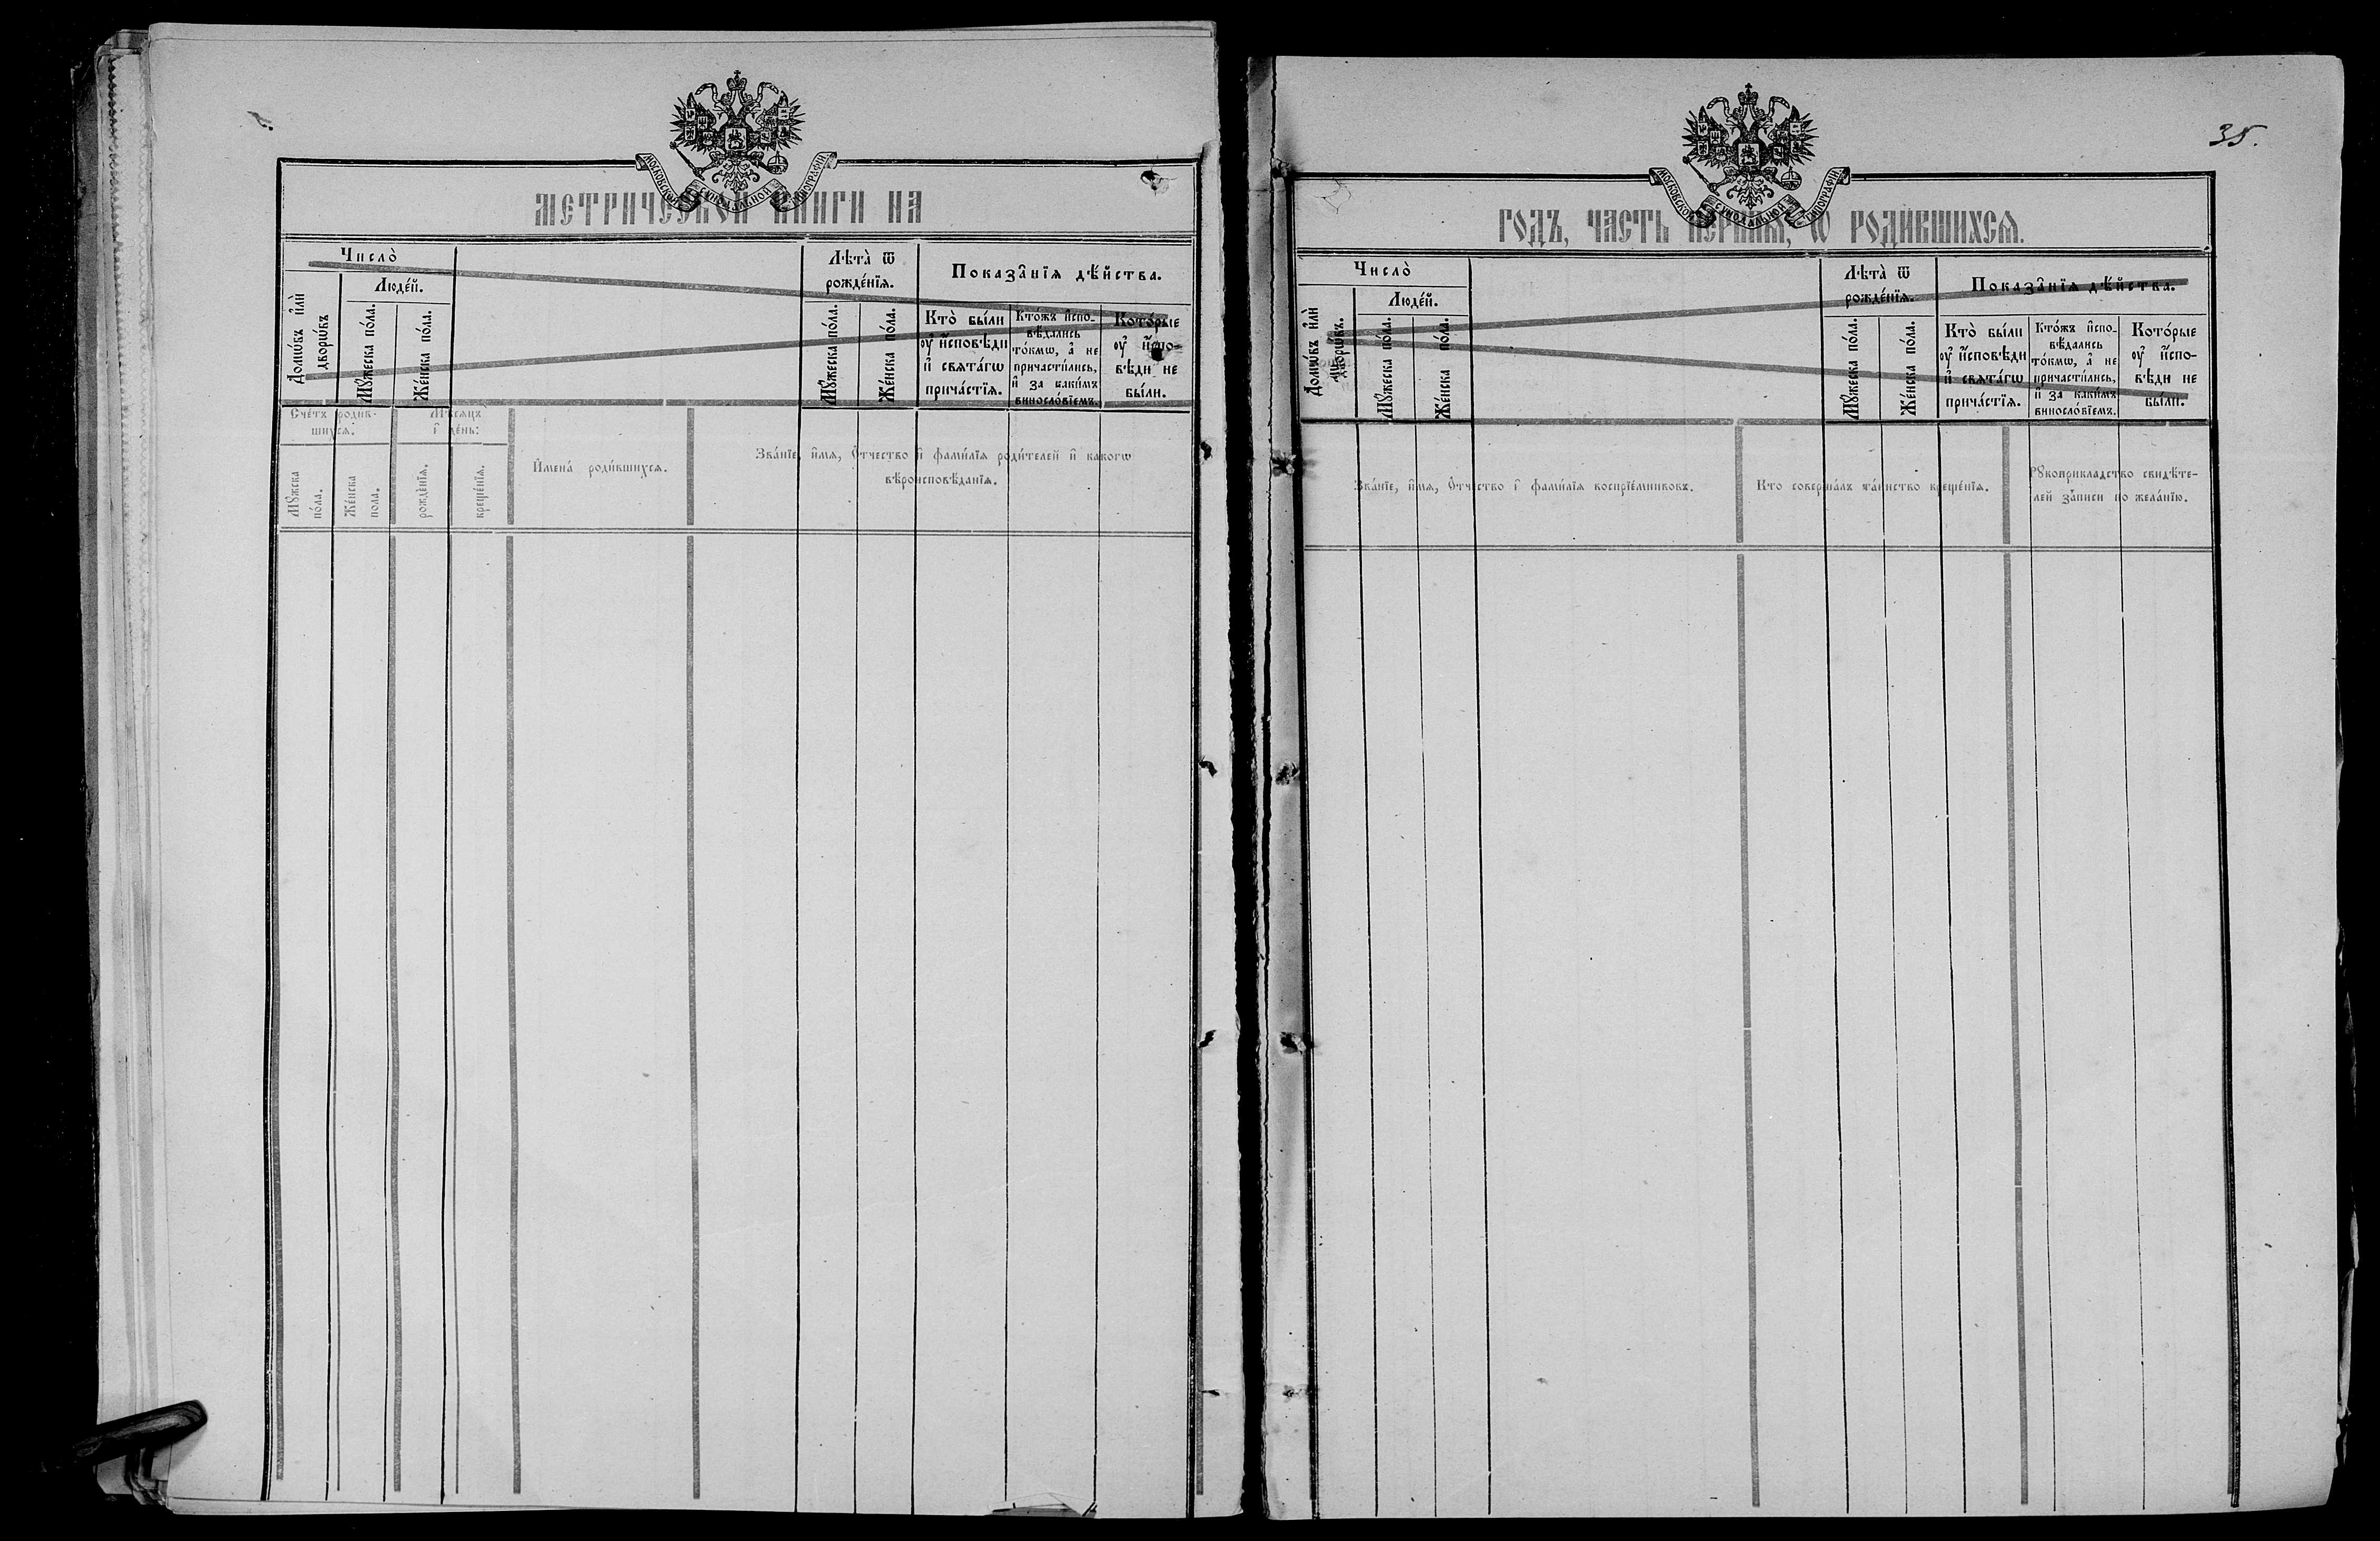 МОСКОВСКОЙ СѴНОДАЛЬНОЙ ТИПОГРАФІИ
МЕТРИЧЕСКОЙ КНИГИ НА
Число̀
Домѡ́въ и҆лѝ
дворѡ́въ
Люде́й.
Мꙋ́жеска по́ла.
Же́нска по́ла.
Лѣта̀ ѿ
рожде́нїѧ.
Мꙋ́жеска по́ла.
Же́нска по́ла.
Показа̑нїѧ дѣ́йства.
Кто̀ бы́ли
ᲂу҆ и҆сповѣ́ди
и҆ свѧта́гѡ
прича́стїѧ.
Кто́жъ и҆спо-
вѣ́дались
то́кмѡ, а҆ не
причасти́лись,
и҆ за каки́мъ
виносло́вїемъ.
Кото́рые
ᲂу҆ и҆спо-
вѣ́ди не
бы́ли.
Сче́тъ родив-
шихсѧ.
Мꙋ́жска
по́ла.
Же́нска
пола.
Мѣ́сѧцъ
и҆ де́нь:
рожде́нїѧ.
креще́нїѧ.
И҆мена́ роди́вшихсѧ.
Зва́нїе, и҆́мѧ, ѻ҆́тчество и҆ фами́лїѧ роди́телей и҆ како́гѡ
вѣроисповѣ́данїѧ.
35.
МОСКОВСКОЙ СѴНОДАЛЬНОЙ ТИПОГРАФІИ
ГОДЪ, ЧАСТЬ ПЕРВАѦ, Ѡ РОДИ́ВШИХСѦ.
Число̀
Домѡ́въ и҆лѝ
дворѡ́въ.
Люде́й.
Мꙋ́жеска по́ла.
Же́нска по́ла.
Лѣта̀ ѿ
рожде́нїѧ.
Мꙋ́жеска по́ла.
Же́нска по́ла.
Показа̑нїѧ дѣ́йства.
Кто̀ бы́ли
ᲂу҆ и҆сповѣ́ди
и҆ свѧта́гѡ
прича́стїѧ.
Кто́жъ и҆спо-
вѣ́дались
то́кмѡ, а҆ не
причасти́лись,
и҆ за каки́мъ
виносло́вїемъ.
Кото́рые
ᲂу҆ и҆спо-
вѣ́ди не
бы́ли.
Зва́нїе, и҆́мѧ, ѻ҆́тчество и҆ фами́лїѧ воспрїе́мниковъ.
Кто соверша́лъ та́инство креще́нїѧ.
Рꙋкоприкладство свидѣ́те-
лей за́писи по жела́нїю.